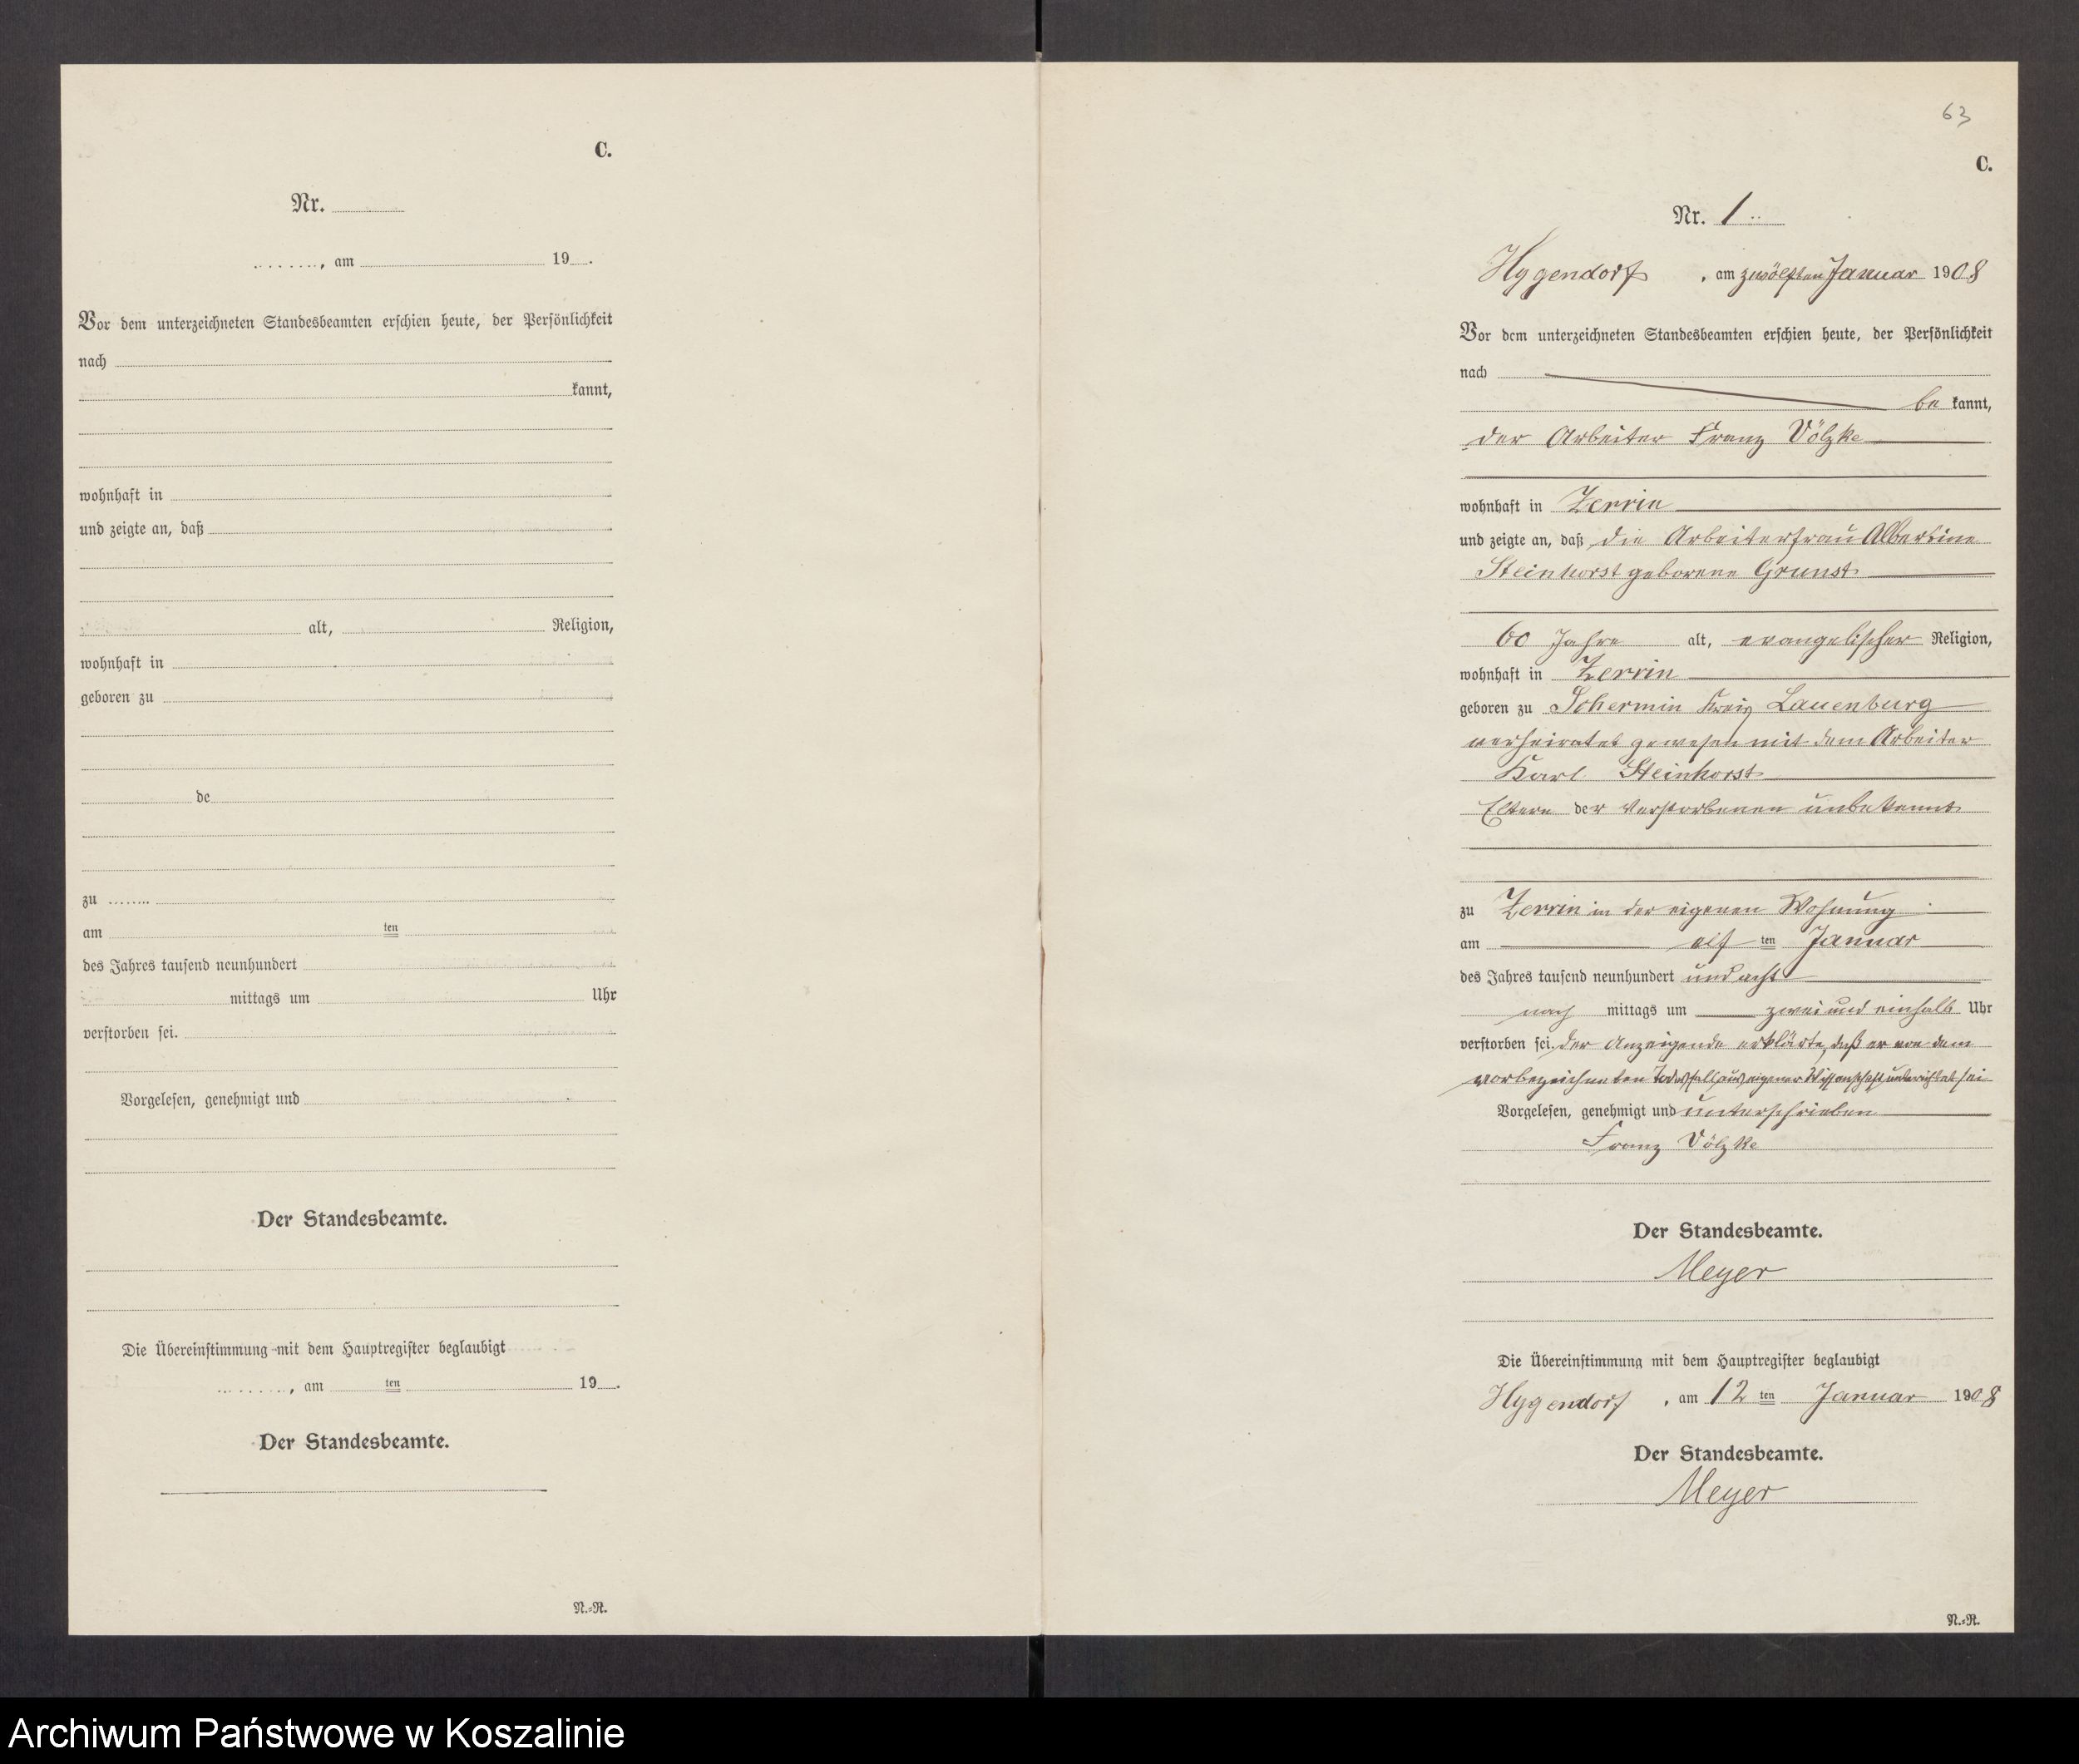 C.
Nr.
, am 19 .
Vor dem unterzeichneten Standesbeamten erschien heute, der Persönlichkeit
nach
kannt,
wohnhaft in
und zeigte an, daß
alt, Religion,
wohnhaft in
geboren zu
de
zu
am ten
des Jahres tausend neunhundert
mittags um Uhr
verstorben sei.
Vorgelesen, genehmigt und
Der Standesbeamte.
Die Übereinstimmung mit dem Hauptregister beglaubigt
, am ten 19 .
Der Standesbeamte.
N.=R.
63
C.
Nr. 1
Hygendorf, am zwölften Januar 1908
Vor dem unterzeichneten Standesbeamten erschien heute, der Persönlichkeit
nach
be kannt,
der Arbeiter Franz Völzke
wohnhaft in Zerrin
und zeigte an, daß die Arbeiterfrau Albertine
Steinhorst geborene Grunst
60 Jahre alt, evangelischer Religion,
wohnhaft in Zerrin
geboren zu Schermin Kreis Lauenburg
verheiratet gewesen mit dem Arbeiter
Karl Steinhorst
Eltern der Verstorbenen unbekannt
zu Zerrin in der eigenen Wohnung
am elf ten Januar
des Jahres tausend neunhundert und acht
nach mittags um zwei und einhalb Uhr
verstorben sei. Der Anzeigende erklärte, daß er von dem
vorbezeichneten Todesfall aus eigener Wissenschaft unterrichtet sei
Vorgelesen, genehmigt und unterschrieben
Franz Völzke
Der Standesbeamte.
Meyer
Die Übereinstimmung mit dem Hauptregister beglaubigt
Hygendorf, am 12 ten Januar 1908
Der Standesbeamte.
Meyer
N.=R.
Archiwum Państwowe w Koszalinie